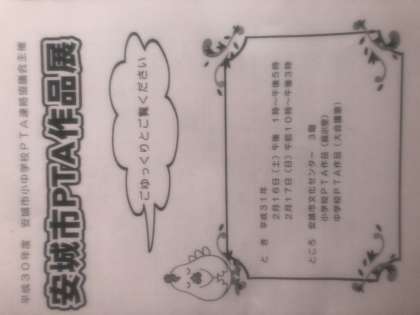 平成30年度　安城市小中学校PTA連絡協議会主催
安城市PTA作品展
ごゆっくりとご覧ください
と　き　平成31年
2月16日（土）午後　1時～午後5時
2月17日（日）午前10時～午後3時
ところ　安城市文化センター　3階
小学校PTA作品（展示室）
中学校PTA作品（大会議室）